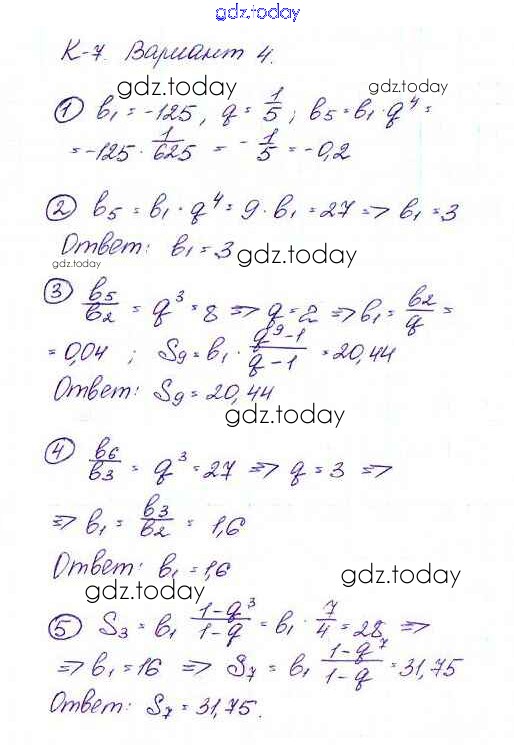 gdz.today
К-7 Вариант 4.
gdz.today gdz.today
① b₁ = -125, q = 1/5; b₅ = b₁ · q⁴ =
= -125 · 1/625 = -1/5 = -0,2
② b₅ = b₁ · q⁴ = 9 · b₁ = 27 => b₁ = 3
Ответ: b₁ = 3
gdz.today gdz.today
③ b₅/b₂ = q³ = 8 => q = 2 => b₁ = b₂/q =
= 0,04 ; S₉ = b₁ · (q⁹-1)/(q-1) = 20,44
Ответ: S₉ = 20,44
gdz.today
④ b₆/b₃ = q³ = 27 => q = 3 =>
=> b₁ = b₃/b₂ = 1,6
Ответ: b₁ = 1,6
gdz.today gdz.today
⑤ S₃ = b₁ (1-q³)/(1-q) = b₁ · 7/4 = 28 =>
=> b₁ = 16 => S₇ = b₁ (1-q⁷)/(1-q) = 31,75
Ответ: S₇ = 31,75.